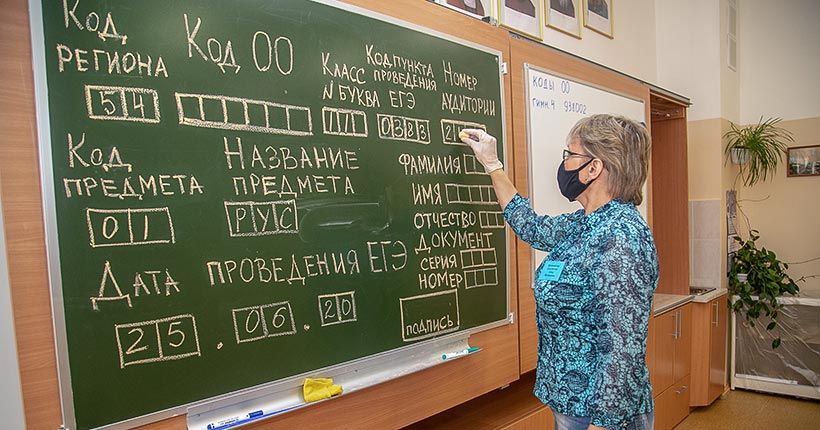 Код региона
54
Код ОО
Класс № буква
Код пункта проведения ЕГЭ
0383
Номер аудитории
2
Код предмета
01
Название предмета
РУС
Дата проведения ЕГЭ
25.06.20
Фамилия
Имя
Отчество
Документ
серия
номер
подпись
коды ОО
гимн. 4 938002